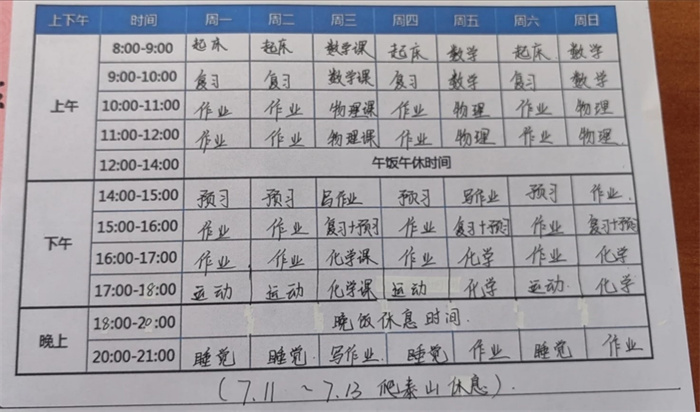 上下午 时间 周一 周二 周三 周四 周五 周六 周日
8:00-9:00 起床 起床 数学课 起床 数学 起床 数学
上午 9:00-10:00 复习 复习 数学课 复习 数学 复习 数学
10:00-11:00 作业 作业 物理课 作业 物理 作业 物理
11:00-12:00 作业 作业 物理课 作业 物理 作业 物理
12:00-14:00 午饭午休时间
14:00-15:00 预习 预习 写作业 预习 写作业 预习 作业
下午 15:00-16:00 作业 作业 复习+预习 作业 复习+预习 作业 复习+预习
16:00-17:00 作业 作业 化学课 作业 化学 作业 化学
17:00-18:00 运动 运动 化学课 运动 化学 运动 化学
晚上 18:00-20:00 晚饭休息时间
20:00-21:00 睡觉 睡觉 写作业 睡觉 作业 睡觉 作业
(7.11 ~ 7.13 爬泰山休息)